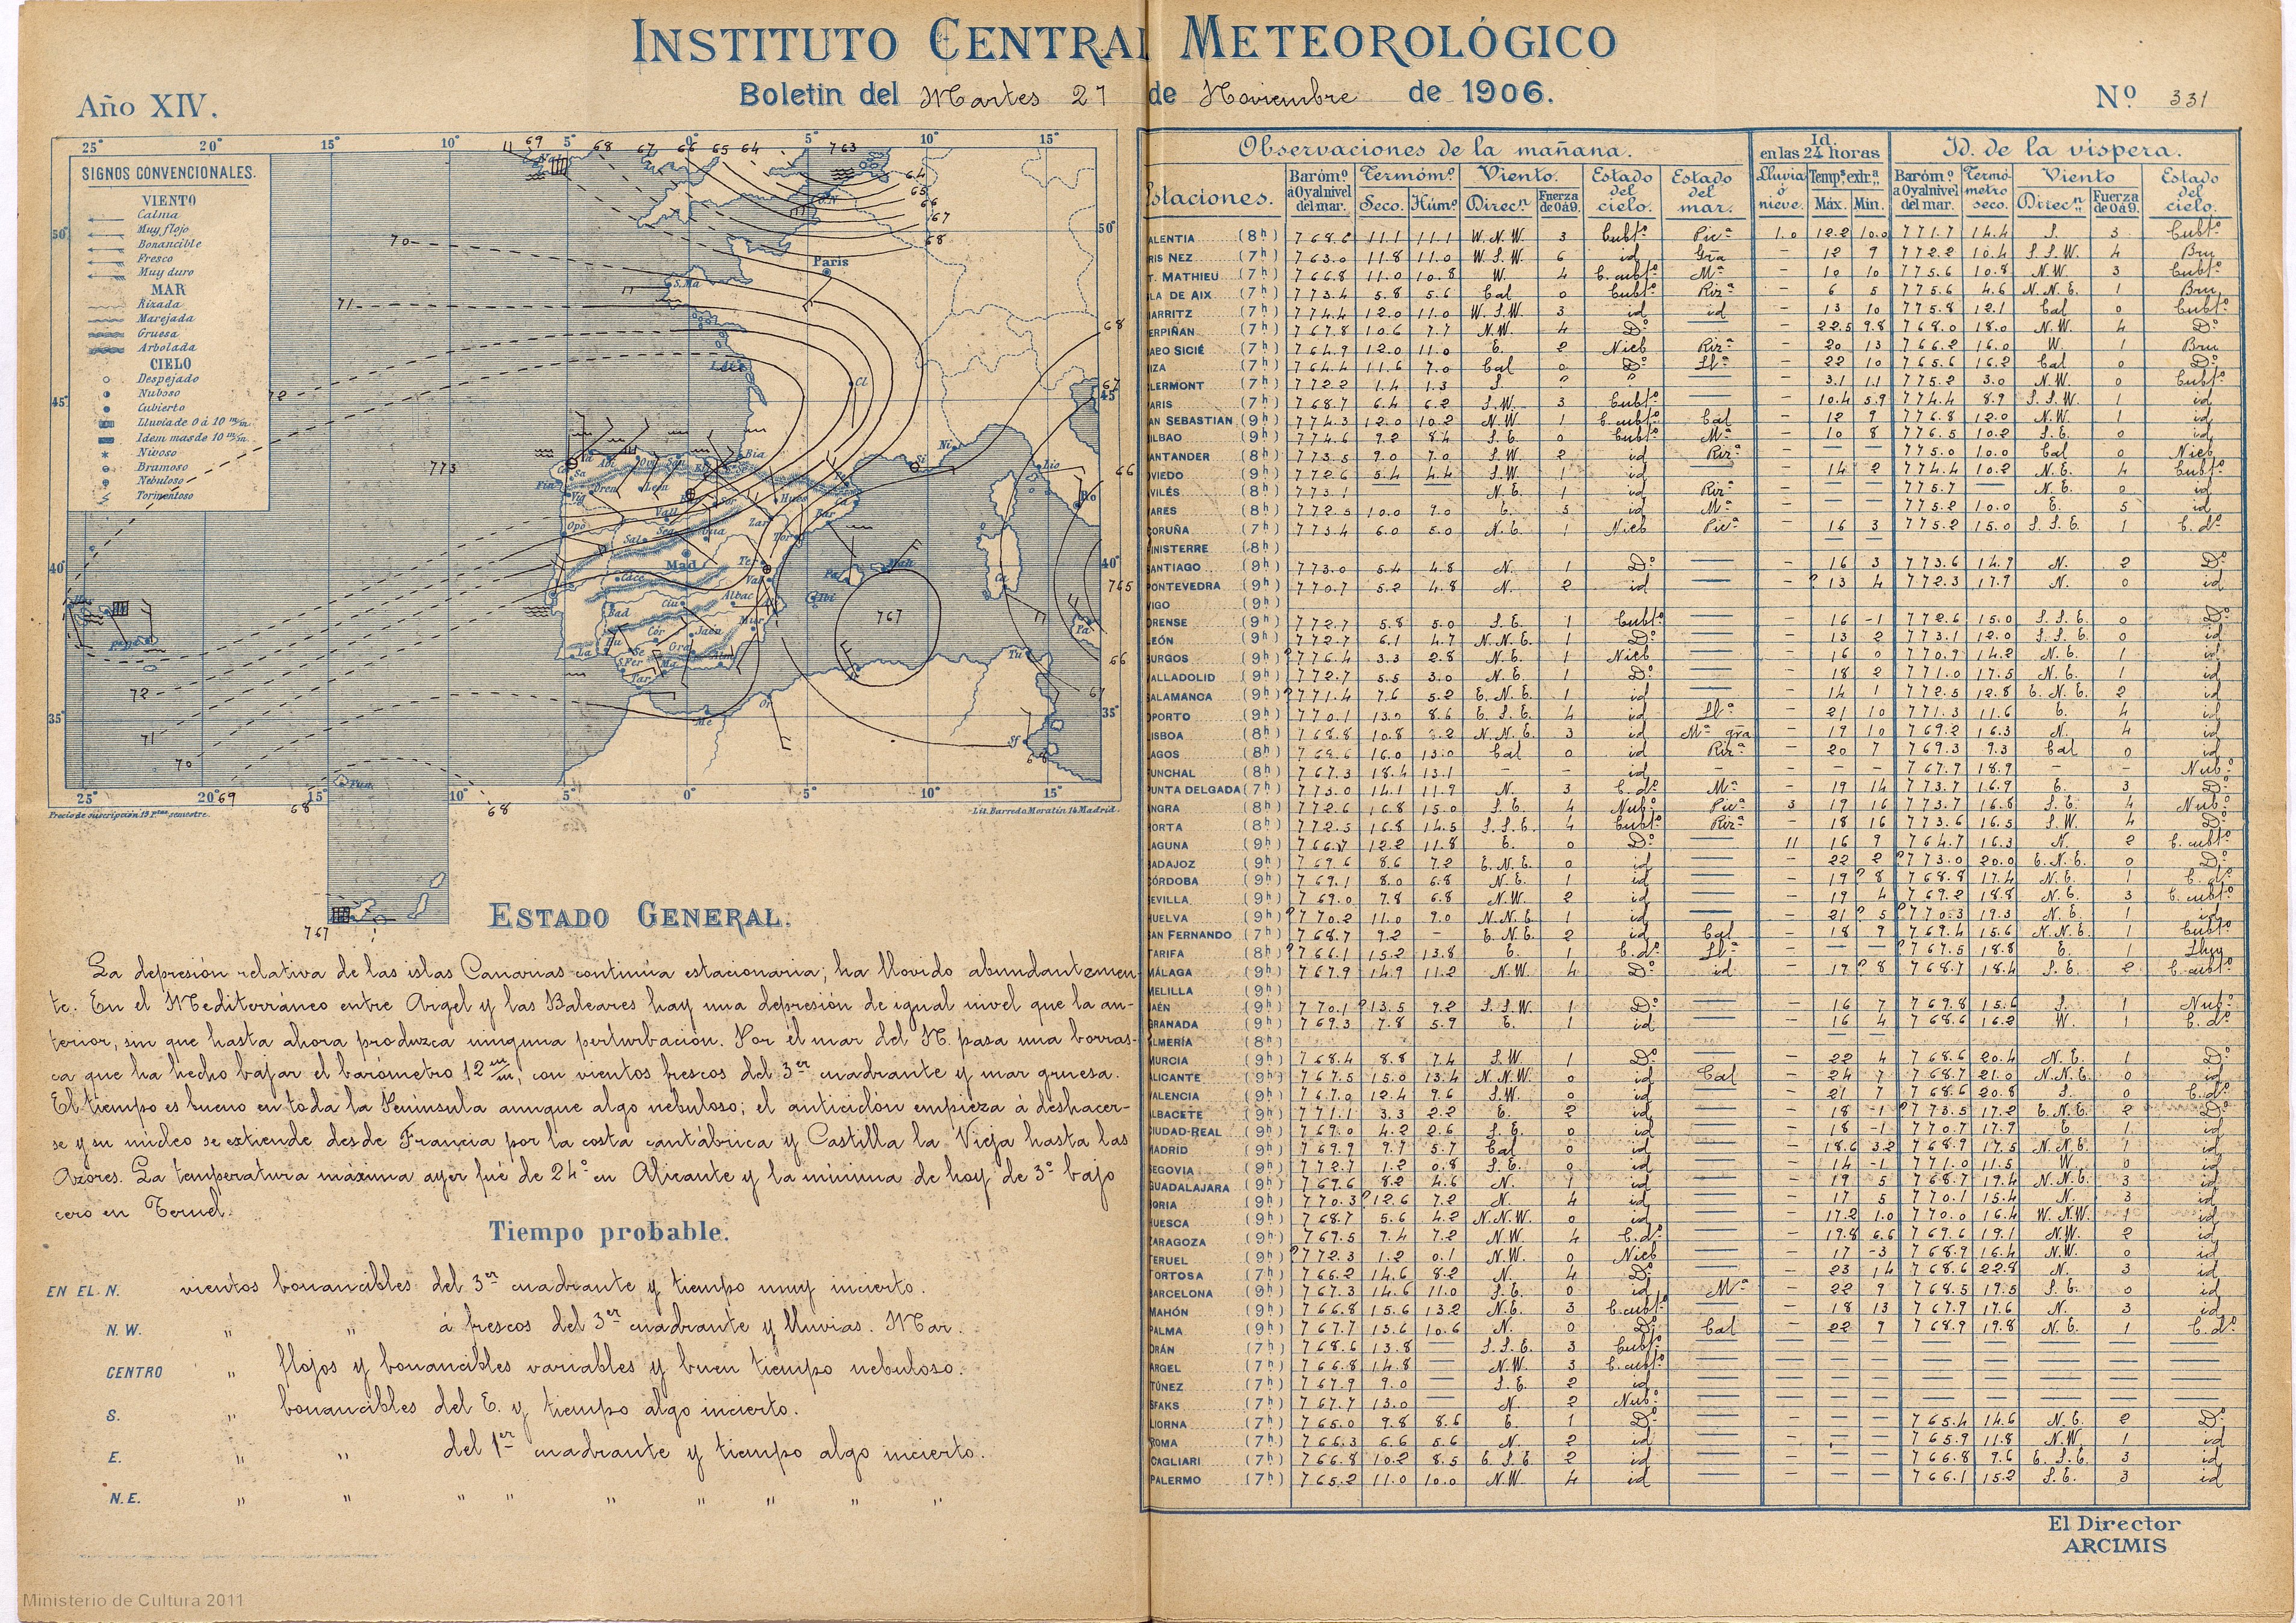 INSTITUTO CENTRAL METEOROLÓGICO
Boletin del Martes 27 de Noviembre de 1906.
Año XIV.
Nº 331
SIGNOS CONVENCIONALES.
VIENTO
Calma
Muy flojo
Bonancible
Fresco
Muy duro
MAR
Rizada
Marejada
Gruesa
Arbolada
CIELO
Despejado
Nuboso
Cubierto
Lluvia de 0 á 10 m/m.
Idem mas de 10 m/m.
Nivoso
Brumoso
Nebuloso
Tormentoso
Paris
Mad
773
767
Precio de suscripción 15 ptas semestre.
Lit. Barredo Moratin 14 Madrid.
ESTADO GENERAL.
La depresión relativa de las islas Canarias continúa estacionaria; ha llovido abundantemen-
te. En el Mediterráneo entre Argel y las Baleares hay una depresión de igual nivel que la an-
terior, sin que hasta ahora produzca ninguna perturbación. Por el mar del N. pasa una borras-
ca que ha hecho bajar el barómetro 12 m/m, con vientos frescos del 3er cuadrante y mar gruesa.
El tiempo es bueno en toda la Península aunque algo nebuloso; el anticiclón empieza á deshacer-
se y su núcleo se extiende desde Francia por la costa cantábrica y Castilla la Vieja hasta las
Azores. La temperatura máxima ayer fué de 24° en Alicante y la mínima de hoy de 3° bajo
cero en Teruel.
Tiempo probable.
EN EL N. vientos bonancibles del 3er cuadrante y tiempo muy incierto.
N. W. " " á frescos del 3er cuadrante y lluvias. Mar.
CENTRO " flojos y bonancibles variables y buen tiempo nebuloso.
S. " bonancibles del E. y tiempo algo incierto.
E. " " del 1er cuadrante y tiempo algo incierto.
N. E. " " " " " " " " "
Observaciones de la mañana.
Id. en las 24 horas
Id. de la víspera.
Estaciones. Baróm.º á 0 y al nivel del mar. Termóm.º Seco. Húm.º Viento. Direc.n Fuerza de 0 á 9. Estado del cielo. Estado del mar. Lluvia ó nieve. Temp.s extr.as Máx. Min. Baróm.º a 0 y al nivel del mar. Termómetro seco. Viento Direc.n Fuerza de 0 á 9. Estado del cielo.
ALENTIA (8h) 768.6 11.1 11.1 W.N.W. 3 Cubtº Picª 1.0 12.2 10.0 771.7 14.4 S. 3 Cubtº
RIS NEZ (7h) 763.0 11.8 11.0 W.S.W. 6 id Gra — 12 9 772.2 10.4 S.S.W. 4 Bru
T. MATHIEU (7h) 766.8 11.0 10.8 W. 4 C. cubtº Mª — 10 10 775.6 10.8 N.W. 3 Cubtº
LA DE AIX (7h) 773.4 5.8 5.6 Cal 0 Cubtº Rizª — 6 5 775.6 4.6 N.N.E. 1 Bru
IARRITZ (7h) 774.4 12.0 11.0 W.S.W. 3 id id — 13 10 775.8 12.1 Cal 0 Cubtº
ERPIÑAN (7h) 767.8 10.6 7.7 N.W. 4 Dº — — 22.5 9.8 768.0 18.0 N.W. 4 Dº
ABO SICIÉ (7h) 764.9 12.0 11.0 E. 2 Nieb Rizª — 20 13 766.2 16.0 W. 1 Bru
IZA (7h) 764.4 11.6 7.0 Cal 0 Dº Llª — 22 10 765.6 16.2 Cal 0 Dº
LERMONT (7h) 772.2 1.4 1.3 S. — 3.1 1.1 775.2 3.0 N.W. 0 Cubtº
ARIS (7h) 768.7 6.4 6.2 S.W. 3 Cubtº — — 10.4 5.9 774.4 8.9 S.S.W. 1 id
AN SEBASTIAN (9h) 774.3 12.0 10.2 N.W 1 C. cubtº Cal — 12 9 776.8 12.0 N.W. 1 id
ILBAO (9h) 774.6 9.2 8.4 S.E. 0 Cubtº Mª — 10 8 776.5 10.2 S.E. 0 id
ANTANDER (8h) 773.5 9.0 7.0 S.W. 2 id Rizª 775.0 10.0 Cal 0 Nieb
OVIEDO (9h) 772.6 5.4 4.4 S.W. 1 id — 14 2 774.4 10.2 N.E. 4 Cubtº
VILÉS (8h) 773.1 — N.E. 1 id Rizª — — — 775.7 — N.E. 0 id
ARES (8h) 772.5 10.0 9.0 E. 5 id Mª 775.2 10.0 E. 5 id
CORUÑA (7h) 773.4 6.0 5.0 N.E. 1 Nieb Picª — 16 3 775.2 15.0 S.S.E. 1 C.dº
FINISTERRE (8h) — —
SANTIAGO (9h) 773.0 5.4 4.8 N. 1 Dº — — 16 3 773.6 14.9 N. 2 Dº
PONTEVEDRA (9h) 770.7 5.2 4.8 N. 2 id — — 13 4 772.3 17.7 N. 0 id
VIGO (9h)
ORENSE (9h) 772.7 5.8 5.0 S.E. 1 Cubtº — — 16 -1 772.6 15.0 S.S.E. 0 Dº
LEÓN (9h) 772.7 6.1 4.7 N.N.E. 1 Dº — — 13 2 773.1 12.0 S.S.E. 0 id
BURGOS (9h) 776.4 3.3 2.8 N.E. 1 Nieb — — 16 0 770.9 14.2 N.E. 1 id
VALLADOLID (9h) 772.7 5.5 3.0 N.E. 1 Dº — — 18 2 771.0 17.5 N.E. 1 id
SALAMANCA (9h) 771.4 7.6 5.2 E.N.E. 1 id — — 14 1 772.5 12.8 E.N.E. 2 id
OPORTO (9h) 770.1 13.0 8.6 E.S.E. 4 id Llª — 21 10 771.3 11.6 E. 4 id
LISBOA (8h) 768.8 10.8 N.N.E. 3 id Mª gra — 19 10 769.2 16.3 N. 4 id
LAGOS (8h) 768.6 16.0 13.0 Cal 0 id Rizª — 20 7 769.3 9.3 Cal 0 id
FUNCHAL (8h) 767.3 18.4 13.1 — — id — — — — 767.9 18.9 — — Nubº
PUNTA DELGADA (7h) 773.0 14.1 11.9 N. 3 C.dº Mª — 19 14 773.7 16.9 E. 3 Dº
ANGRA (8h) 772.6 16.8 15.0 S.E. 4 Nubº Picª 3 19 16 773.7 16.8 S.E. 4 Nubº
HORTA (8h) 772.5 16.8 14.5 S.S.E. 4 Cubtº Rizª — 18 16 773.6 16.5 S.W. 4 Dº
LAGUNA (9h) 766.7 12.2 11.8 E. 0 Dº — 11 16 9 764.7 16.3 N. 2 C. cubtº
BADAJOZ (9h) 769.6 8.6 7.2 E.N.E. 0 id — 22 2 773.0 20.0 E.N.E. 0 Dº
CÓRDOBA (9h) 769.1 8.0 6.8 N.E. 1 id — — 19 8 768.8 17.4 N.E. 1 C.dº
SEVILLA (9h) 769.0 7.8 6.8 N.W. 2 id — 19 4 769.2 18.8 N.E. 3 C. cubtº
HUELVA (9h) 770.2 11.0 9.0 N.N.E. 1 id — — 21 5 770.3 19.3 N.E. 1 id
SAN FERNANDO (7h) 768.7 9.2 — E.N.E. 2 id Cal — 18 9 769.4 15.6 N.N.E. 1 Cubtº
TARIFA (8h) 766.1 15.2 13.8 E. 1 C.dº Llª — — — 767.5 18.8 E. 1 Lluv
MÁLAGA (9h) 767.9 14.9 11.2 N.W. 4 Dº id — 19 8 768.7 18.4 S.E. 2 C. cubtº
MELILLA (9h)
JAÉN (9h) 770.1 13.5 9.2 S.S.W. 1 Dº — — 16 7 769.8 15.6 S. 1 Nubº
GRANADA (9h) 769.3 7.8 5.9 E. 1 id — — 16 4 768.6 16.2 W. 1 C.dº
ALMERÍA (8h)
MURCIA (9h) 768.4 8.8 7.4 S.W. 1 Dº — — 22 4 768.6 20.4 N.E. 1 Dº
ALICANTE (9h) 767.5 15.0 13.4 N.N.W. 0 id Cal — 24 7 768.7 21.0 N.N.E. 0 id
VALENCIA (9h) 767.0 12.4 9.6 S.W. 0 id — — 21 7 768.6 20.8 S. 0 C.dº
ALBACETE (9h) 771.1 3.3 2.2 E. 2 id — — 18 -1 773.5 17.2 E.N.E. 2 Dº
CIUDAD-REAL (9h) 769.0 4.2 2.6 S.E. 0 id — — 18 -1 770.7 17.9 E. 1 id
MADRID (9h) 769.9 9.7 5.7 Cal 0 id — — 18.6 3.2 768.9 17.5 N.N.E. 1 id
SEGOVIA (9h) 772.7 1.2 0.8 S.E. 0 id — — 14 -1 771.0 11.5 W. 0 id
GUADALAJARA (9h) 769.6 8.2 4.6 N. 1 id — — 19 5 768.7 19.4 N.N.E. 3 id
SORIA (9h) 770.3 12.6 7.2 N. 4 id — — 17 5 770.1 15.4 N. 3 id
HUESCA (9h) 768.7 5.6 4.2 N.N.W. 0 id — — 17.2 1.0 770.0 16.4 W.N.W. 1 id
ZARAGOZA (9h) 769.5 9.4 7.2 N.W. 4 C.dº — — 19.8 6.6 769.6 19.1 N.W. 2 id
TERUEL (9h) 772.3 1.2 0.1 N.W. 0 Nieb — — 17 -3 768.9 16.4 N.W. 0 id
TORTOSA (7h) 766.2 14.6 8.2 N. 4 Dº — — 23 14 768.6 22.8 N. 3 id
BARCELONA (9h) 767.3 14.6 11.0 S.E. 0 id Mª — 22 9 768.5 19.5 S.E. 0 id
MAHÓN (9h) 766.8 15.6 13.2 N.E. 3 C. cubtº — — 18 13 767.9 17.6 N. 3 id
PALMA (9h) 767.7 13.6 10.6 N. 0 Dº Cal — 22 9 768.9 19.8 N.E. 1 C.dº
ORÁN (7h) 768.6 13.8 — S.S.E. 3 Cubtº
ARGEL (7h) 766.8 14.8 — N.W. 3 C. cubtº
TÚNEZ (7h) 767.9 9.0 — S.E. 2 id
SFAKS (7h) 767.7 13.0 N 2 Nubº
LIORNA (7h) 765.0 9.8 8.6 E. 1 Dº — — — — 765.4 14.6 N.E. 2 Dº
ROMA (7h) 766.3 6.6 5.6 N. 2 id — — — 765.9 11.8 N.W. 1 id
CAGLIARI (7h) 766.8 10.2 8.5 E.S.E. 2 id — — — — 766.8 9.6 E.S.E. 3 id
PALERMO (7h) 765.2 11.0 10.0 N.W. 4 id — — — — 766.1 15.2 S.E. 3 id
El Director
ARCIMIS
Ministerio de Cultura 2011